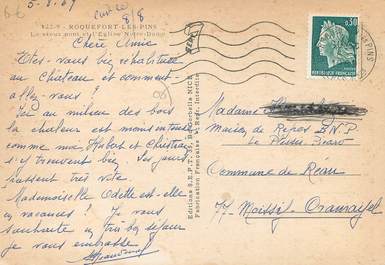 5-8-69
422-9 - ROQUEFORT-LES-PINS
Le vieux pont et l'Eglise Notre-Dame
8/8
Chère Amie
Etes-vous bien rehabituée
au Château et comment
allez-vous ?
Ici au milieu des bois
la chaleur est
comme moi Hubert et Christian
s'y trouvent bien. Les jours
passent très vite.
Mademoiselle Odette est-elle
en vacances ? Je vous
souhaite un très bon séjour
je vous embrasse
Editions S.E.P.T. 35, rue Barberis NICE
Fabrication Française - Rep. Interdite
0,30
REPUBLIQUE FRANÇAISE
Madame
Maison de Repos B.N.P.
Le Plessis Picard
Commune de Réau
77- Moissy Cramayel